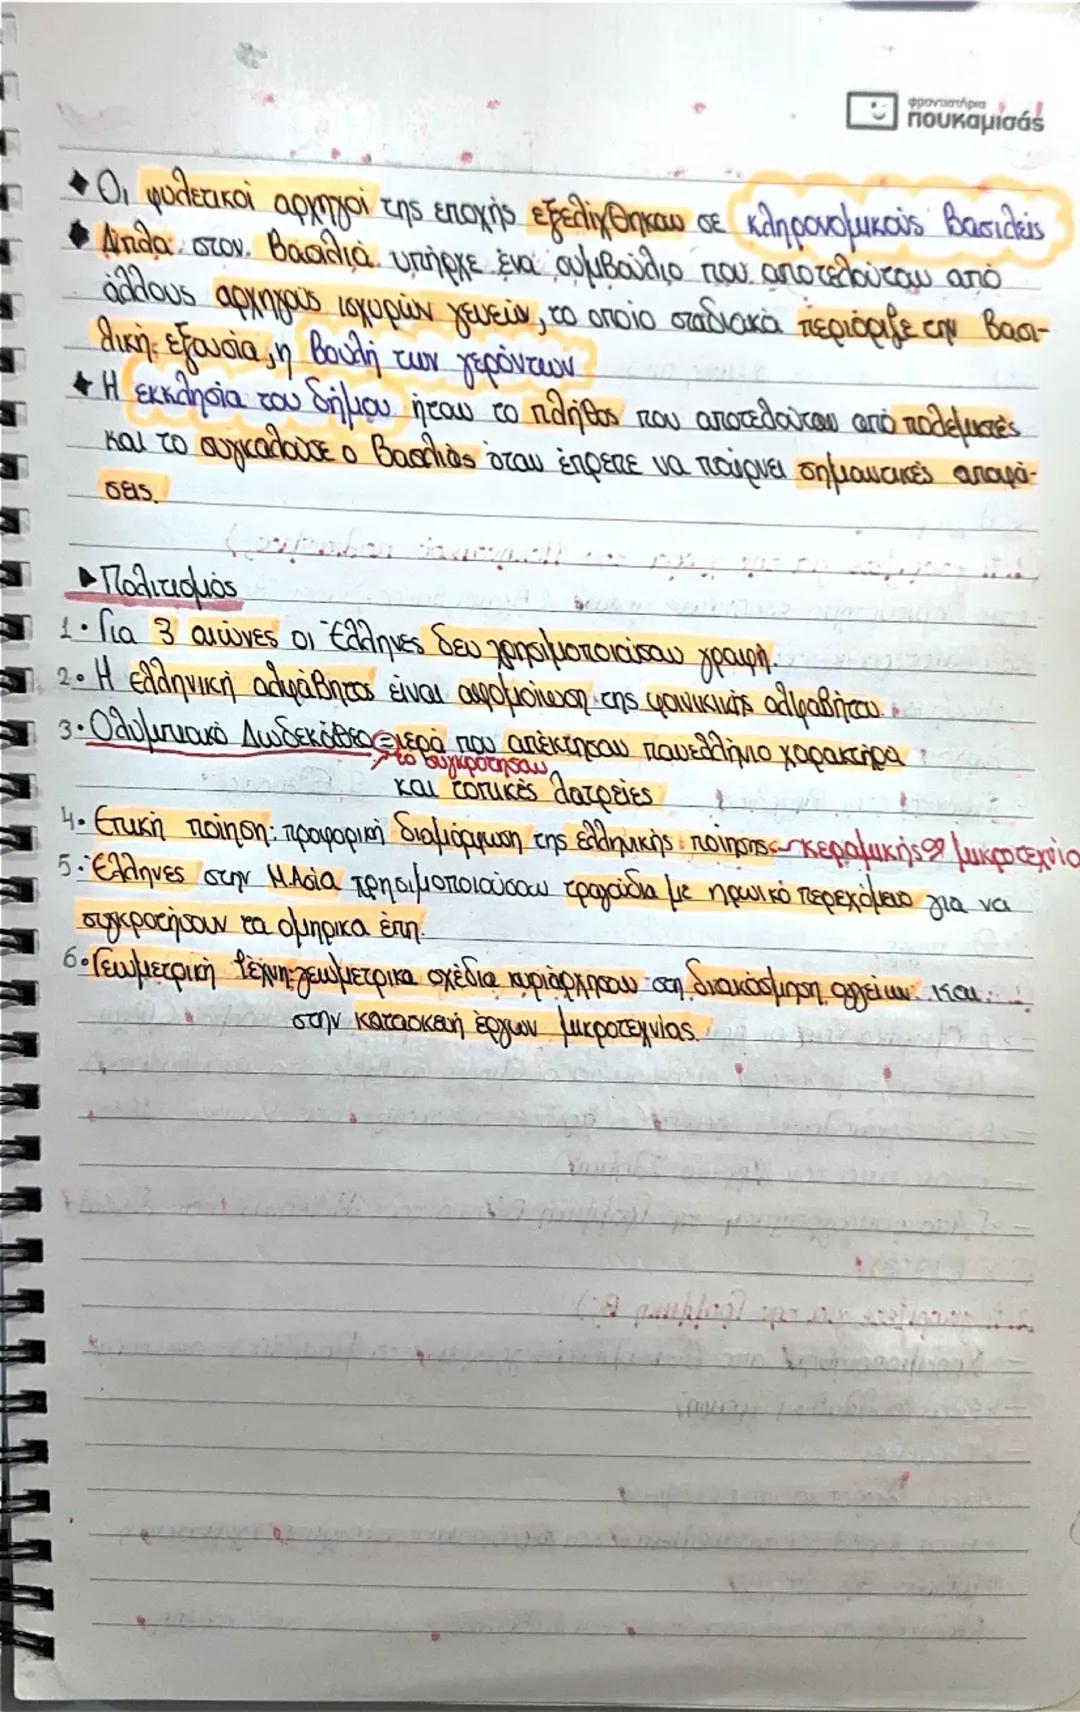 φροντιστήρια
πουκαμισάς
◆ Οι φυλετικοί αρχηγοί της εποχής εξελίχθηκαν σε κληρονομικούς βασιλείς
◆ Δίπλα στον βασιλιά υπήρχε ένα συμβούλιο που αποτελούταν από
άλλους αρχηγούς ισχυρών γενειών, το οποίο σταδιακά περιόριζε την βασι-
λική εξουσία, η βουλή των γερόντων
◆ Η εκκλησία του δήμου ήταν το πλήθος που αποτελούταν από πολεμιστές
και το συγκαλούσε ο βασιλιάς όταν έπρεπε να παίρνει σημαντικές αποφά-
σεις.
▶ Πολιτισμός
1• Για 3 αιώνες οι Έλληνες δεν χρησιμοποιούσαν γραφή.
2• Η ελληνική αλφάβητος είναι αφομοίωση της φοινικικής αλφαβήτου.
3• Ολυμπιακό Δωδεκάθεο = ιερά που απέκτησαν πανελλήνιο χαρακτήρα
→ το συγκρότησαν
και τοπικές λατρείες
4• Επική ποίηση: προφορική διαμόρφωση της ελληνικής ποίησης κεραμικής & μικροτεχνία
5• Έλληνες στην Μ.Ασία χρησιμοποιούσαν τραγούδια με ηρωικό περεχόμενο για να
συγκροτήσουν τα ομηρικα έπη.
6• Γεωμετρική τέχνη: γεωμετρικα σχέδια κυριάρχησαν στη διακόσμηση αγγείων και
στην κατασκευή έργων μικροτεχνίας.